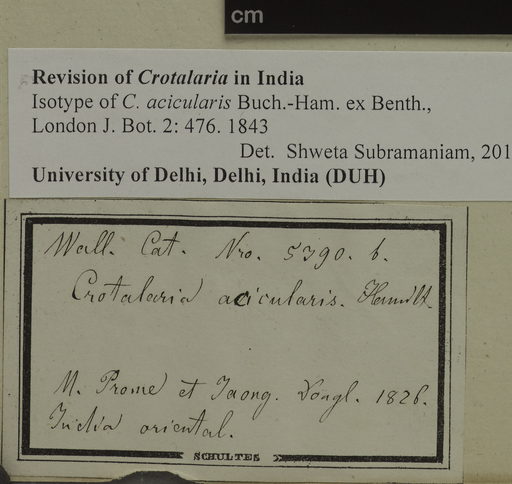 cm
Revision of Crotalaria in India
Isotype of C. acicularis Buch.-Ham. ex Benth.,
London J. Bot. 2: 476. 1843
Det. Shweta Subramaniam, 201
University of Delhi, Delhi, India (DUH)
Wall. Cat. Nro. 5390. b.
Crotalaria acicularis. Hamilt.
M. Prome et Taong. Dongl. 1826.
India oriental.
SCHULTES